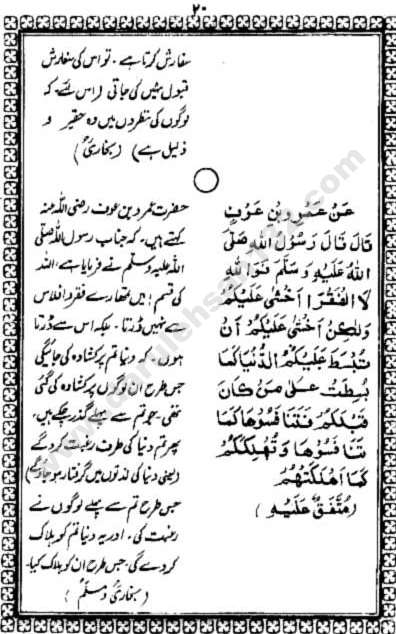 ۲۰
سفارش کرتا ہے۔ تو اس کی سفارش
قبول نہیں کی جاتی (اس لئے کہ
لوگوں کی نظروں میں وہ حقیر و
ذلیل ہے) (بخاریؒ)
عَنْ عَمْرِو بْنِ عَوْفٍ
قَالَ قَالَ رَسُوْلُ اللهِ صَلَّى
اللهُ عَلَيْهِ وَسَلَّمَ فَوَاللهِ
لَا الْفَقْرَ اَخْشٰى عَلَيْكُمْ
وَلٰكِنْ اَخْشٰى عَلَيْكُمْ اَنْ
تُبْسَطَ عَلَيْكُمُ الدُّنْيَا كَمَا
بُسِطَتْ عَلٰى مَنْ كَانَ
قَبْلَكُمْ فَتَنَافَسُوْهَا كَمَا
تَنَافَسُوْهَا وَتُهْلِكَكُمْ
كَمَا اَهْلَكَتْهُمْ
(مُتَّفَقٌ عَلَيْهِ)
حضرت عمرو بن عوف رضی اللہ عنہ
کہتے ہیں۔ کہ جناب رسول اللہ صلی
اللہ علیہ وسلم نے فرمایا ہے اللہ
کی قسم! میں تمھارے فقر و افلاس
سے نہیں ڈرتا۔ بلکہ اس سے ڈرتا
ہوں۔ کہ دنیا تم پر کشادہ کی جائیگی
جس طرح ان لوگوں پر کشادہ کی گئی
تھی۔ جو تم سے پہلے گذر چکے ہیں۔
پھر تم دنیا کی طرف رغبت کرو گے
(یعنی دنیا کی لذتوں میں گرفتار ہو جاؤ گے)
جس طرح تم سے پہلے لوگوں نے
رغبت کی۔ اور یہ دنیا تم کو ہلاک
کر دے گی۔ جس طرح ان کو ہلاک کیا۔
(بخاریؒ و مسلمؒ)